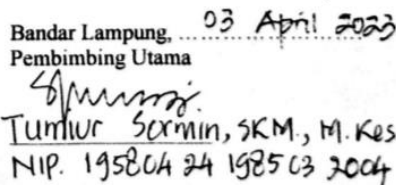 Bandar Lampung, 03 April 2023
Pembimbing Utama
Tumiur Sormin, SKM., M.Kes
NIP. 195804 24 198503 2004